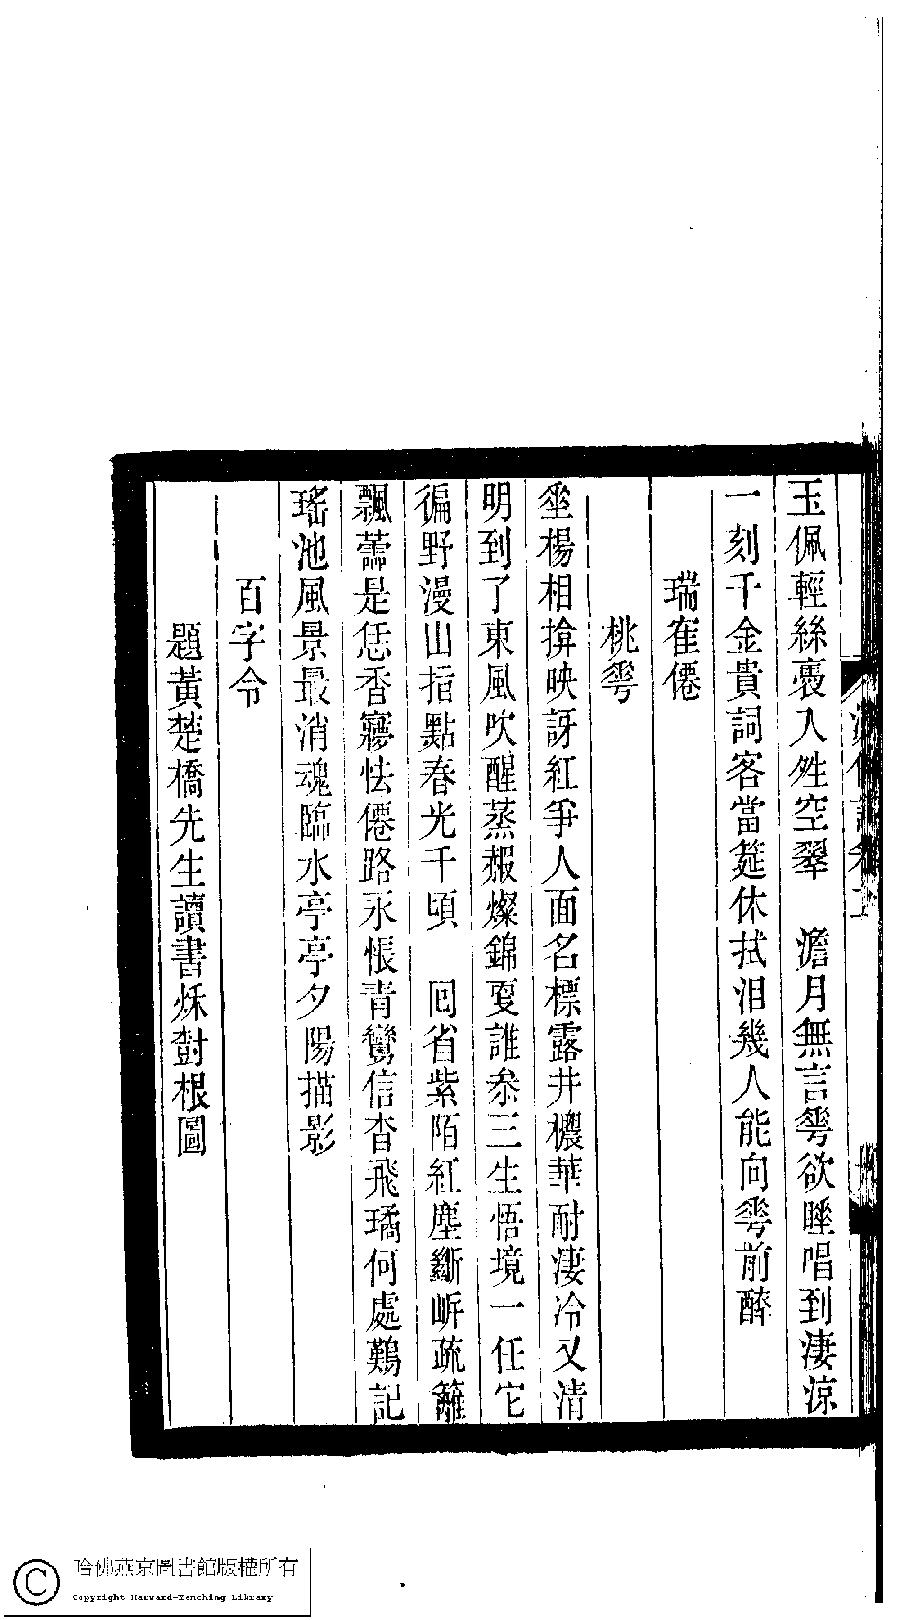 玉佩輕絲裛入甡空翠　澹月無言㗾欲睡唱到淒涼
一刻千金貴詞客當筵休拭泪幾人能向㗾前醉
瑞隺僊
桃㗾
𡍮楊相揜映訝紅爭人面名標露井穠華耐淒冷又清
明到了東風吹醒蒸赧燦錦叓誰叅三生悟境一任它
徧野漫山指點春光千頃　囘省紫陌紅塵斷岍疏籬
飄蕭是恁香寱怯僊路永悵青鸞信杳飛璚何處鷄記
瑤池風景最消魂臨水亭亭夕陽描影
百字令
題黃楚橋先生讀書秌對根圖
哈佛燕京圖書館版權所有
Copyright Harvard-Yenching Library